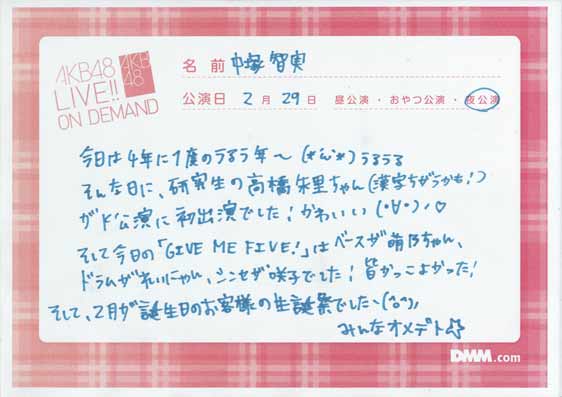 AKB48
LIVE!!
ON DEMAND
AKB
48
名前 中塚智実
公演日 2月29日 昼公演・おやつ公演・夜公演
今日は4年に1度のうるう年〜(*´ω`*)うるうる
そんな日に、研究生の高橋朱里ちゃん(漢字ちがうかも!)
がド公演に初出演でした!かわいい(・∀・)ノ♡
そして今日の「GIVE ME FIVE!」はベースが萌乃ちゃん、
ドラムがれいにゃん、シンセが咲子でした!皆かっこよかった!
そして、2月が誕生日のお客様の生誕祭でした
みんなオメデト♫
DMM.com